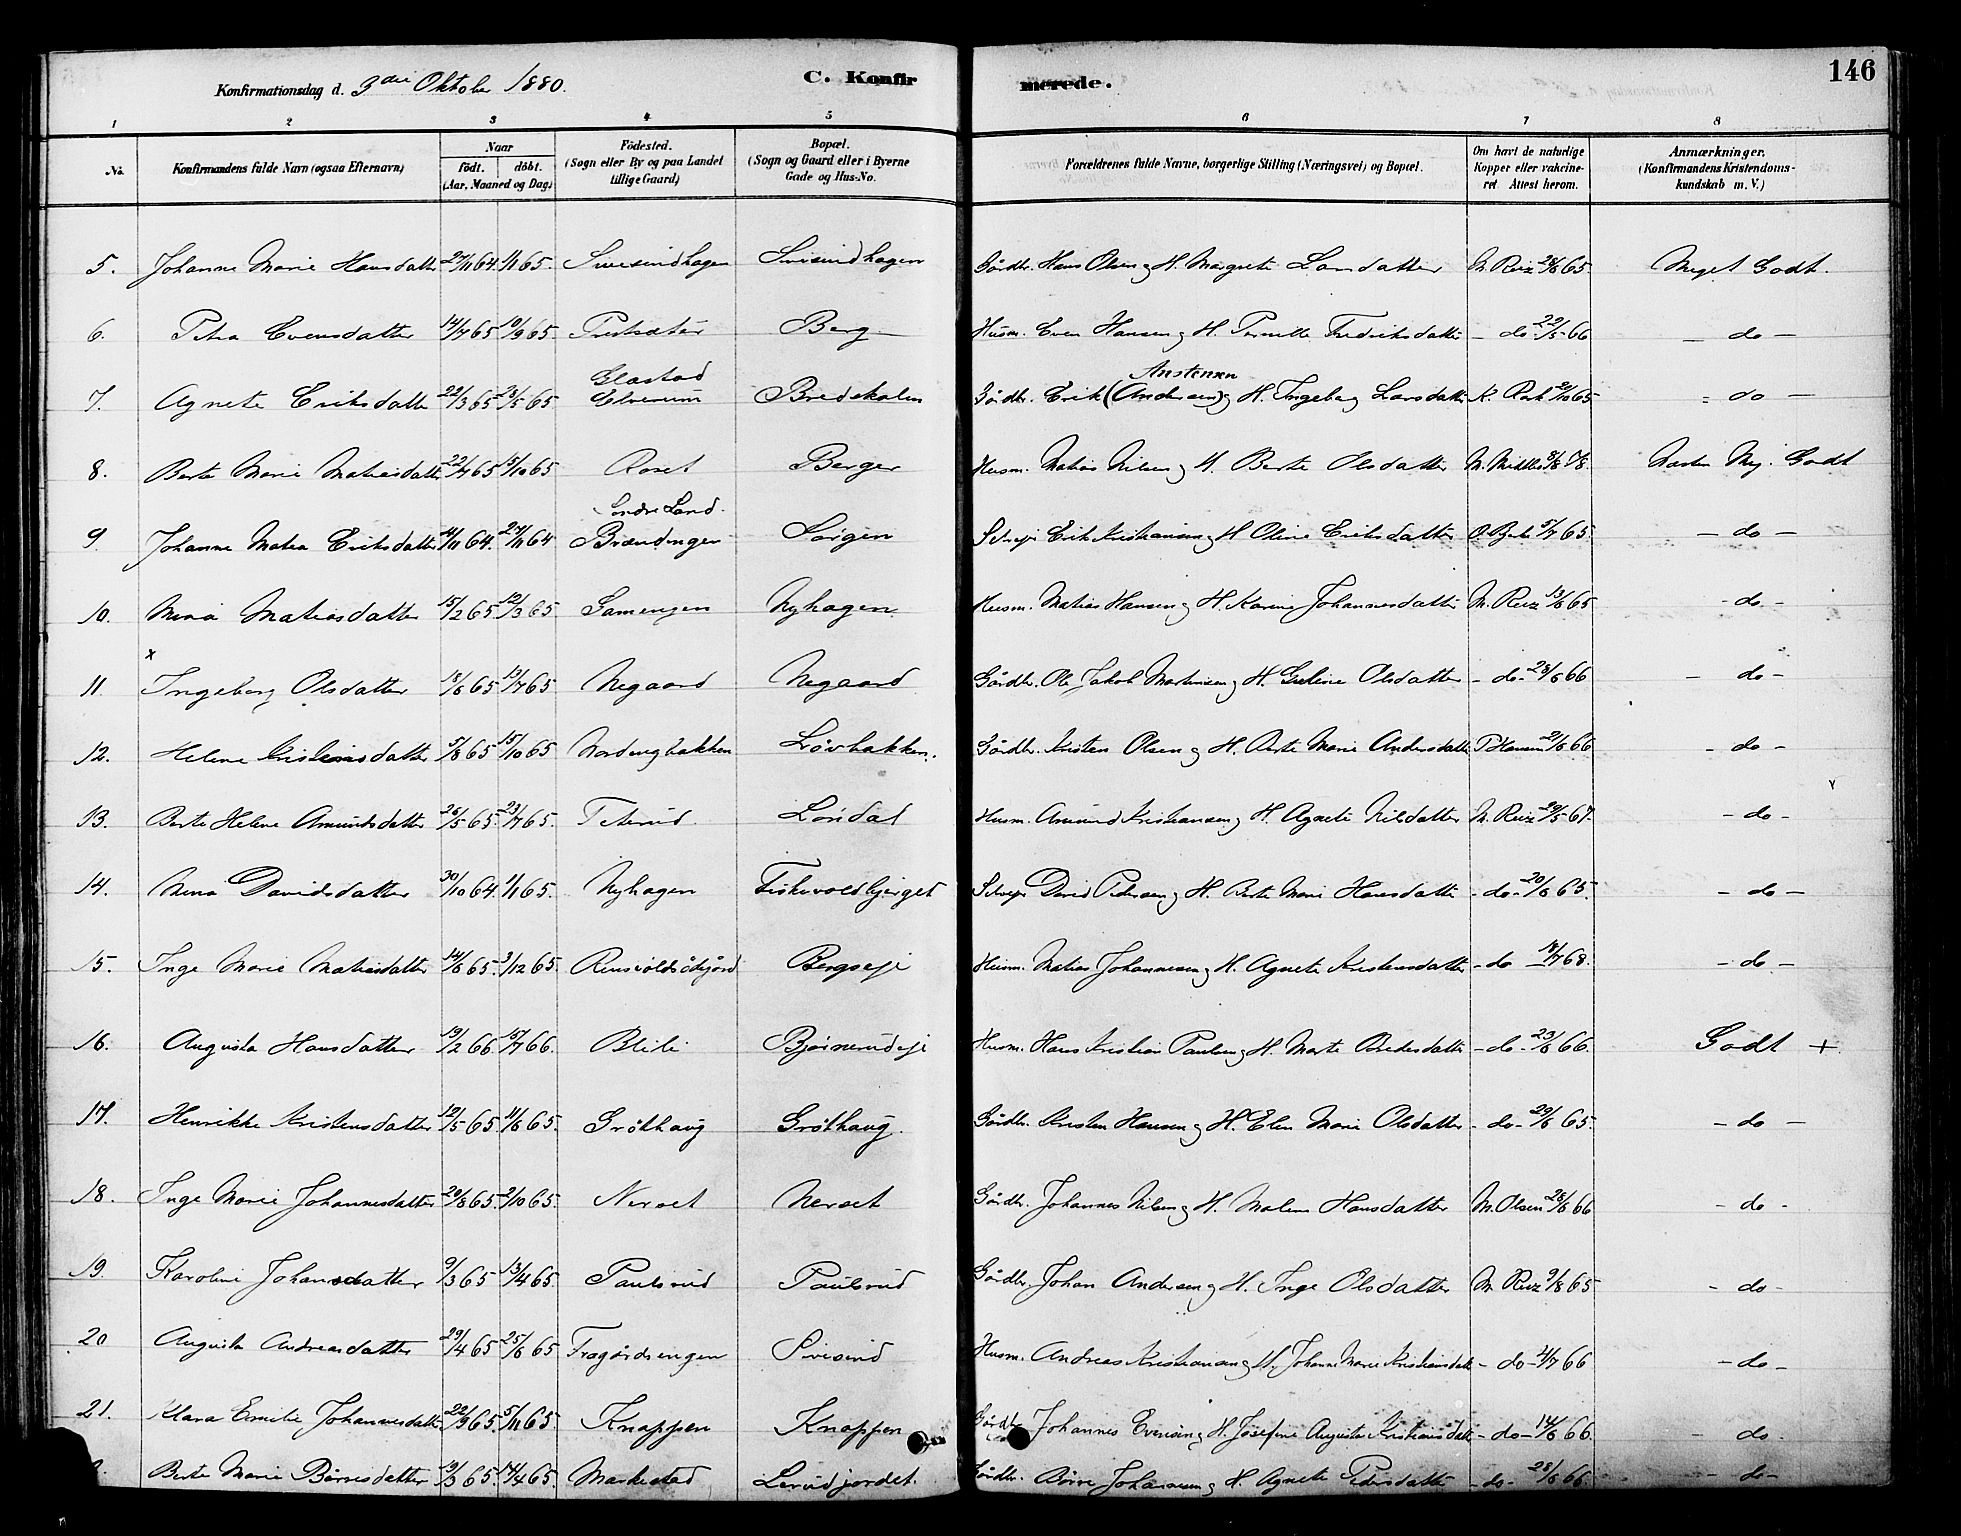 Konfirmationsdag d. 3die Oktober 1880.
C. Konfirmerede.
146
1 2 3 4 5 6 7 8
No.
Konfirmandens fulde Navn (ogsaa Efternavn)
Naar födt. döbt. (Aar, Maaned og Dag)
Födested. (Sogn eller By og paa Landet tillige Gaard)
Bopæl. (Sogn og Gaard eller i Byerne Gade og Hus-No.
Forældrenes fulde Navne, borgerlige Stilling (Næringsvei) og Bopæl.
Om havt de naturlige Kopper eller vakcineret. Attest herom.
Anmærkninger. (Konfirmandens Kristendomskundskab m. V.)
5. Johanne Marie Hansdatter 27/11 64. 1/1 65. Sivesindhagen Sivisindhagen Gårdbr. Hans Olsen og H. Margrete Larsdatter M. Ruz 28/6 65 Meget Godt.
6. Petra Evensdatter 14/7 65 10/9 65. Prestsæter Berg Husm. Even Hansen og H. Pernille Fredriksdatter - do - 22/5 66 - do -
7. Agnete Eriksdatter 22/3 65 25/5 65 Glæstad Elverum Bredskalen Gårdbr. Erik (Andersen) Anstensen og H. Ingeborg Larsdatter K. 2/10 65 - do -
8. Berte Marie Matiasdatter 22/7 65 15/10 65 Roset Berger Husm. Matias Nilsen og H. Berte Olsdatter Næsten Mg. Godt
9. Johanne Matea Eriksdatter 14/11 64. 27/11 64 Søndre Land. Brændengen Sørgen Selvejer Erik Kristiansen og H. Oline Eriksdatter 5/7 65. - do -
10. Mina Matiasdatter 15/2 65 12/3 65. Gamengen Nyhagen Husm. Matias Hansen og H. Karine Johannesdatter M. Ruz 13/6 65 - do -
x
11. Ingeborg Olsdatter 18/6 65 13/7 65 Negaard Negaard Gårdbr. Ole Jakob Martinsen og H. Guline Olsdatter - do - 28/6 66 - do -
12. Helene Kristensdatter 5/8 65 15/10 65 Nordengbakken Løvbakken. Gårdbr. Kristen Olsen og H. Berte Marie Andersdatter P Hansen 21/6 66 - do -
13. Berte Helene Amundsdatter 26/5 65. 23/7 65. Teterud Løndal Husm. Amund Kristiansen og H. Agnete Nilsdatter M. Ruz 29/5 67. - do -
14. Mina Davidsdatter 30/10 64. 1/1 65. Nyhagen Fiskevoldbjerget Selvejer David Pedersen og H. Berte Marie Hansdatter - do - 20/6 65. - do -
15. Inge Marie Matiasdatter 14/6 65. 3/12 65. Bergseje Husm. Matias Johannesen og H. Agnete Kristensdatter - do - 18/7 68. - do -
16. Augusta Hansdatter 19/2 66. 15/7 66. Blili Bjørnerudeje Husm. Hans Kristian Paulsen og H. Marte Bredesdatter - do - 23/6 66. Godt +
17. Henrikke Kristensdatter 12/5 65. 11/6 65. Grøthaug Grøthaug. Gårdbr. Kristen Hansen og H. Elen Marie Olsdatter - do - 29/6 65. - do -
18. Inge Marie Johannesdatter 20/8 65. 2/10 65. Nerset Nerset Gårdbr. Johannes Nilsen og H. Malene Hansdatter M. Olsen 28/6 66 - do -
19. Karoline Johansdatter 9/3 65 13/4 65. Paulsrud Paulsrud Gårdbr. Johan Andersen og H. Inge Olsdatter M. Ruz 9/8 65 - do -
20 Augusta Andreasdatter 29/4 65 25/6 65 Fragårdsengen Sivesind Husm. Andreas Kristiansen og H. Johanne Marie Kristiansdatt - do - 4/7 66 - do -
21. Klara Emilie Johannesdatter 22/9 65. 5/11 65. Knappen Knappen Gårdbr Johannes Evensen og H. Josefine Augusta Kristiansdatt - do - 14/6 66. - do.
Berte Marie Børresdatter 19/3 65. 17/4 65. Markestad Lerudjordet. Gårdbr. Børre Johannesen og H. Agnete Pedersdatter - do - 28/6 66. - do -